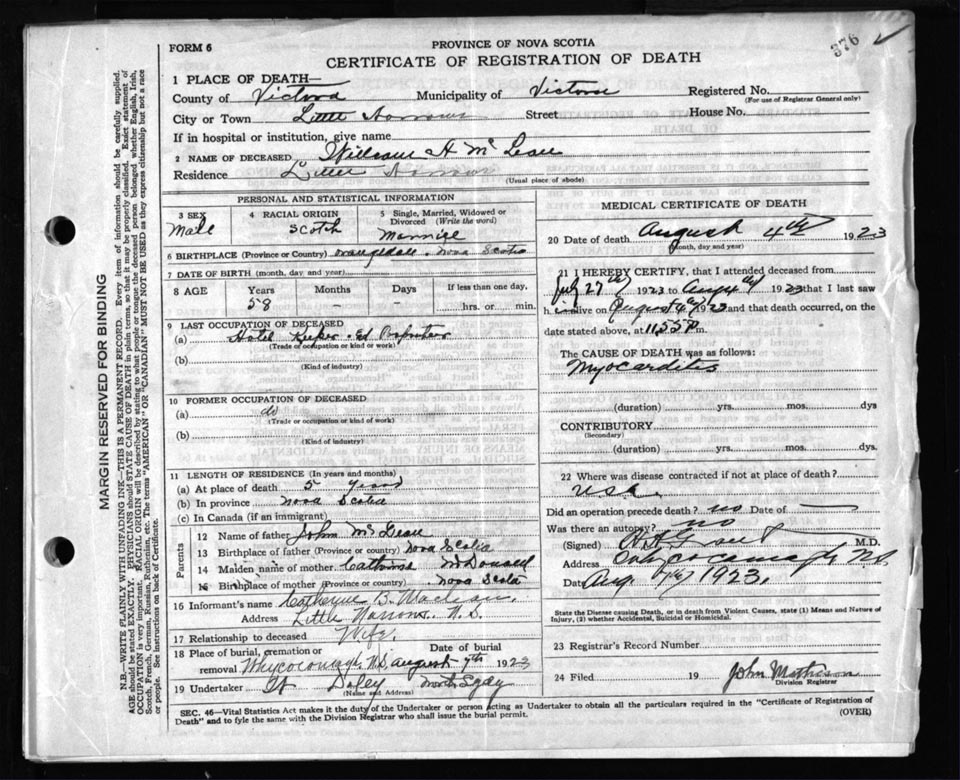 376
FORM 6
PROVINCE OF NOVA SCOTIA
CERTIFICATE OF REGISTRATION OF DEATH
1 PLACE OF DEATH—
County of Victoria Municipality of Victoria Registered No.
(For use of Registrar General only)
City or Town Little Narrows Street House No.
If in hospital or institution, give name
2 NAME OF DECEASED William H McLean
Residence Little Narrows
(Usual place of abode)
PERSONAL AND STATISTICAL INFORMATION
3 SEX 4 RACIAL ORIGIN 5 Single, Married, Widowed or Divorced (Write the word)
Male Scotch Married
6 BIRTHPLACE (Province or Country) Orangedale Nova Scotia
7 DATE OF BIRTH (month, day and year)
8 AGE Years Months Days If less than one day.
58 – – hrs. or min.
9 LAST OCCUPATION OF DECEASED
(a) Hotel Keeper
(Trade or occupation or kind of work)
(b)
(Kind of industry)
10 FORMER OCCUPATION OF DECEASED
(a) do
(Trade or occupation or kind of work)
(b)
(Kind of industry)
11 LENGTH OF RESIDENCE (In years and months)
(a) At place of death 5 years
(b) In province Nova Scotia
(c) In Canada (if an immigrant)
Parents
12 Name of father John McLean
13 Birthplace of father (Province or country) Nova Scotia
14 Maiden name of mother Catherine McDonald
15 Birthplace of mother (Province or country) Nova Scotia
16 Informant's name Catherine B. Maclean.
Address Little Narrows. N.S.
17 Relationship to deceased Wife.
18 Place of burial, cremation or Date of burial
removal Whycocomagh, N.S. August 7th 1923
19 Undertaker
(Name and Address)
MEDICAL CERTIFICATE OF DEATH
20 Date of death August 4th 1923
(month, day and year)
21 I HEREBY CERTIFY, that I attended deceased from
July 27th 1923 to Aug 4th 1923 that I last saw
h im alive on August 4th 1923 and that death occurred, on the
date stated above, at 11.55 P m.
The CAUSE OF DEATH was as follows:
Myocarditis
(duration) yrs. mos. dys
CONTRIBUTORY
(Secondary)
(duration) yrs. mos. dys.
22 Where was disease contracted if not at place of death?
USA
Did an operation precede death? no Date of —
Was there an autopsy? no
(Signed) Grant M.D.
Address Whycocomagh N.S.
Date Aug. 1923.
State the Disease causing Death, or in death from Violent Causes, state (1) Means and Nature of
Injury, (2) whether Accidental, Suicidal or Homicidal.
23 Registrar's Record Number
24 Filed 19 John Matheson
Division Registrar
SEC. 46—Vital Statistics Act makes it the duty of the Undertaker or person acting as Undertaker to obtain all the particulars required in the "Certificate of Registration of
Death" and to fyle the same with the Division Registrar who shall issue the burial permit.
(OVER)
MARGIN RESERVED FOR BINDING
N.B.—WRITE PLAINLY WITH UNFADING INK—THIS IS A PERMANENT RECORD. Every item of information should be carefully supplied.
AGE should be stated EXACTLY. PHYSICIANS should STATE CAUSE OF DEATH in plain terms, so that it may be properly classified. Exact statement of
OCCUPATION is very important. RACIAL ORIGIN will be described by stating to what people or tongue the deceased person belonged whether English, Irish,
Scotch, French, German, Russian, Ruthenian, etc. The terms "AMERICAN" OR "CANADIAN" MUST NOT BE USED as they express citizenship but not a race
or people. See instructions on back of Certificate.